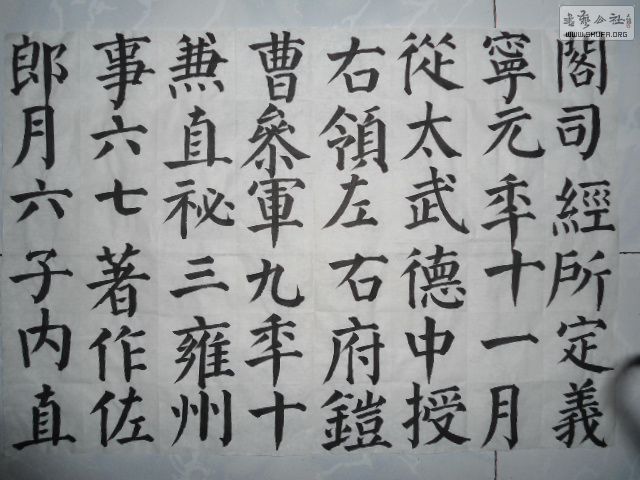 閣司經所定義
寧元年十一月
從太武德中授
右領左右府鎧
曹參軍九年十
兼直祕三雍州
事六七著作佐
郎月六子内直
WWW.SHUFA.ORG